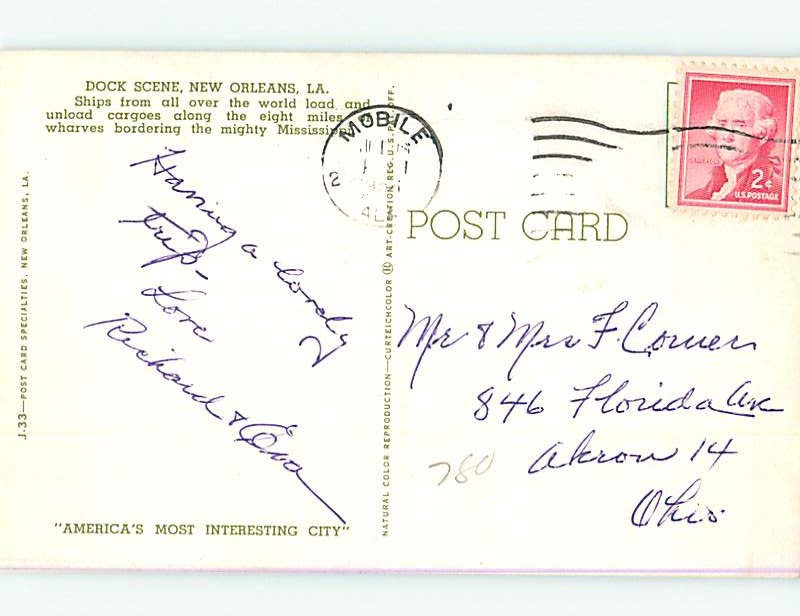 DOCK SCENE, NEW ORLEANS, LA.
Ships from all over the world load and
unload cargoes along the eight miles of
wharves bordering the mighty Mississippi.
Having a lovely
trip-
Love
Richard & Eva
"AMERICA'S MOST INTERESTING CITY"
J-33—POST CARD SPECIALTIES, NEW ORLEANS, LA.
NATURAL COLOR REPRODUCTION—CURTEICHCOLOR ® ART-CREATION REG. U.S. PAT. OFF.
MOBILE
2
ALA
2¢
U.S. POSTAGE
POST CARD
Mr & Mrs F. Comer
846 Florida Ave
Akron 14
Ohio
780